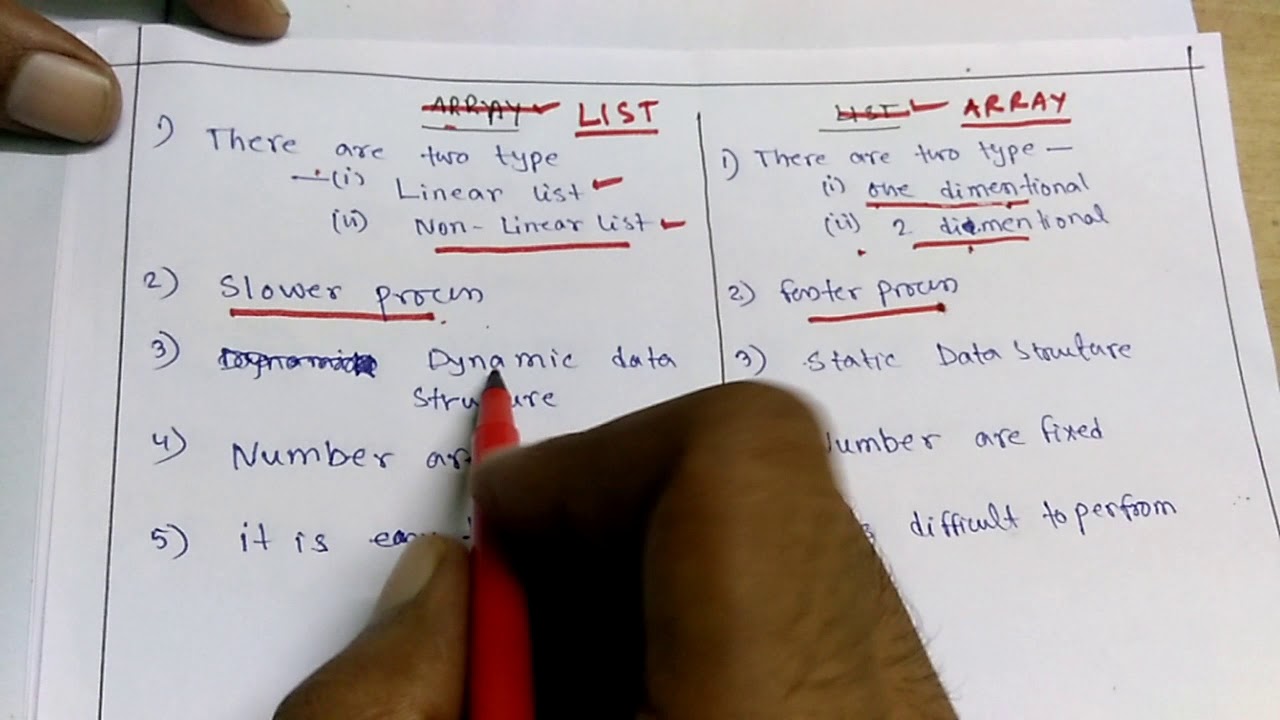 ARRYAY LIST
1) There are two type
(i) Linear list
(ii) Non-Linear list
2) Slower process
3) Dynamic data
Structure
4) Number are
5) it is easy
LIST ARRAY
1) There are two type —
(i) one dimentional
(ii) 2 dimentional
2) faster process
3) Static Data Struture
Number are fixed
difficult to perfrom